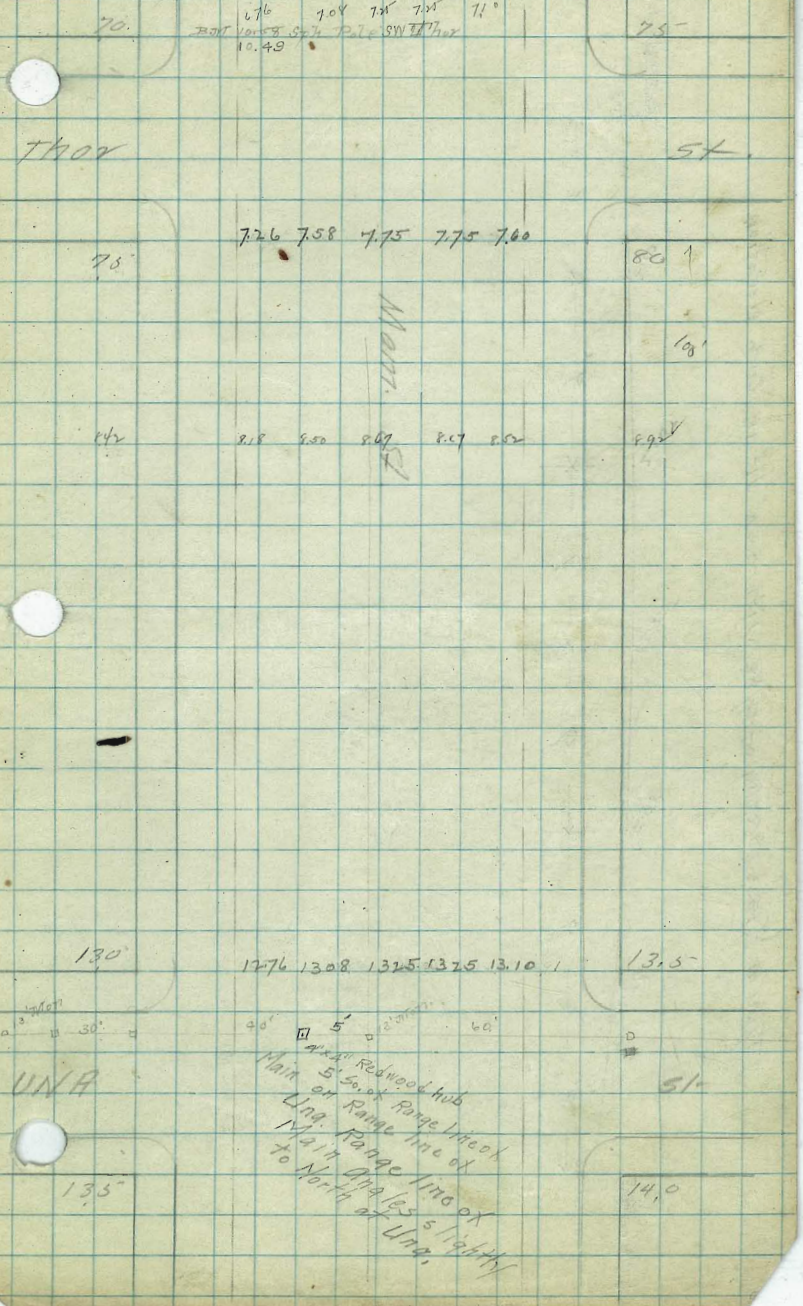 6.76 7.04 7.25 7.25 7.10
70. BM 10.58 Spk Pole SW Thor 75
10.49
Thor St.
7.26 7.58 7.75 7.75 7.60
75 80
Main. St
108'
842 8.18 8.50 8.67 8.67 8.52 8.92
130 1276 1308 1325 1325 13.10 13.5
2" Mon. 30' 40' 5' 2" Mon. 60'
UNA St.
4"x4" Redwood hub
5' So. of Range line of
Main on Range line of
Una. Range line of
Main angles slightly
to North at Una.
135 14.0